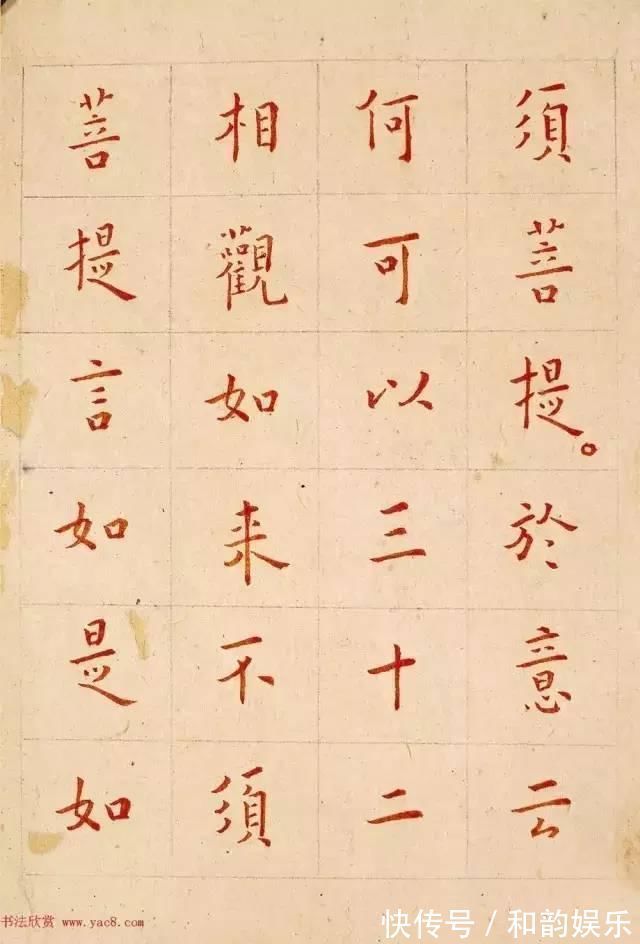 須菩提。於意云
何可以三十二
相觀如来不須
菩提言如是如
书法欣赏 www.yac8.com
快传号/和韵娱乐